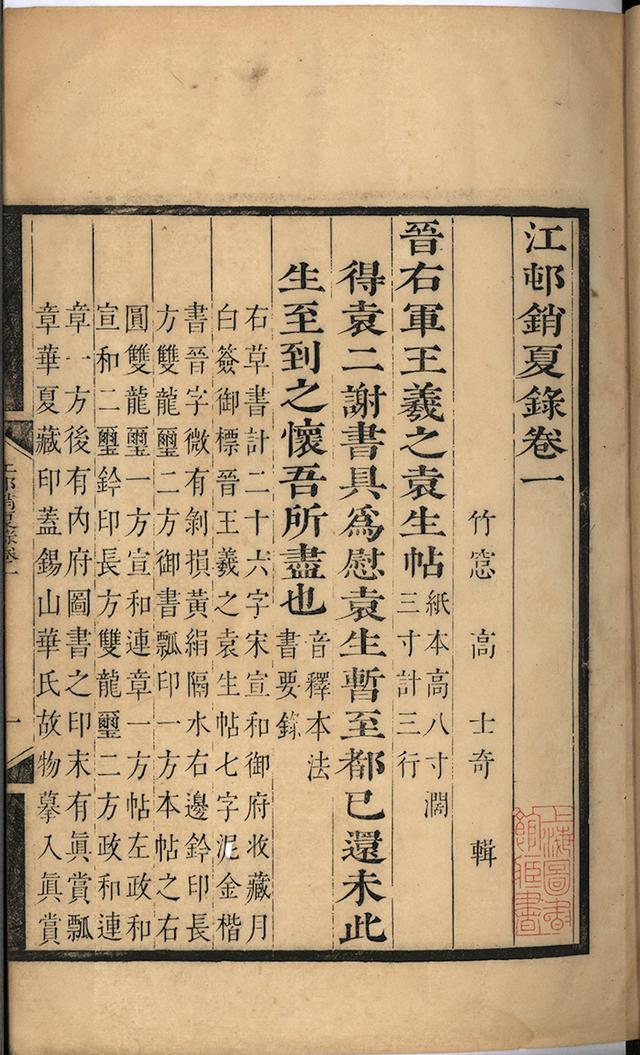 江邨銷夏錄卷一
竹窓 高 士奇 輯
晉右軍王羲之袁生帖
紙本高八寸濶
三寸計三行
得袁二謝書具爲慰袁生暫至都已還未此
生至到之懷吾所盡也
音釋本法
書要錄
右草書計二十六字宋宣和御府收藏月
白簽御標晉王羲之袁生帖七字泥金楷
書晉字微有剝損黃絹隔水右邊鈐印長
方雙龍璽二方御書瓢印一方本帖之右
圓雙龍璽一方宣和連章一方帖左政和
宣和二璽鈐印長方雙龍璽二方政和連
章一方後有內府圖書之印末有眞賞瓢
章華夏藏印蓋錫山華氏故物摹入眞賞
上海圖書
館藏書